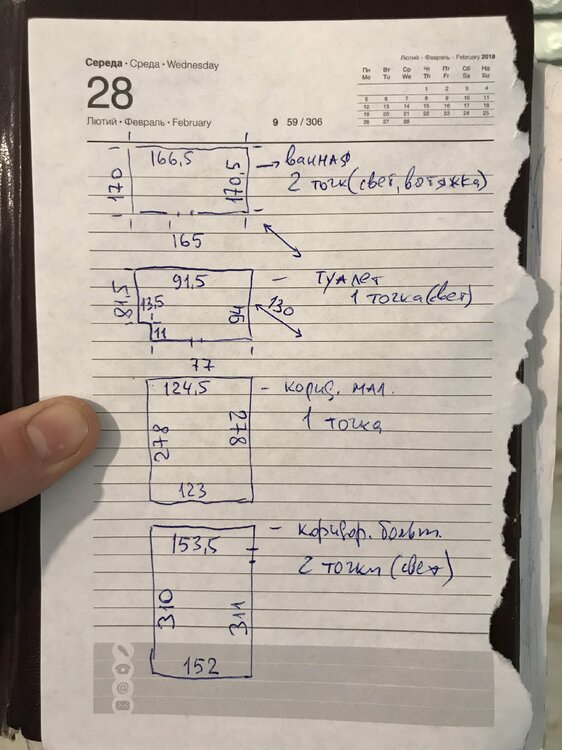 Середа • Среда • Wednesday
28
Лютий • Февраль • February
9 59 / 306
Лютий • Февраль • February 2018
Пн Вт Ср Чт Пт Сб Нд
Mo Tu We Th Fr Sa Su
1 2 3 4
5 6 7 8 9 10 11
12 13 14 15 16 17 18
19 20 21 22 23 24 25
26 27 28
166,5
170
170,5
165
ванная
2 точк (свет, вотяжка)
91,5
81,5
13,5
11
94
130
77
туалет
1 точка (свет)
124,5
278
278
123
корид. мал.
1 точка
153,5
310
311
152
коридор. больш.
2 точки (свет)